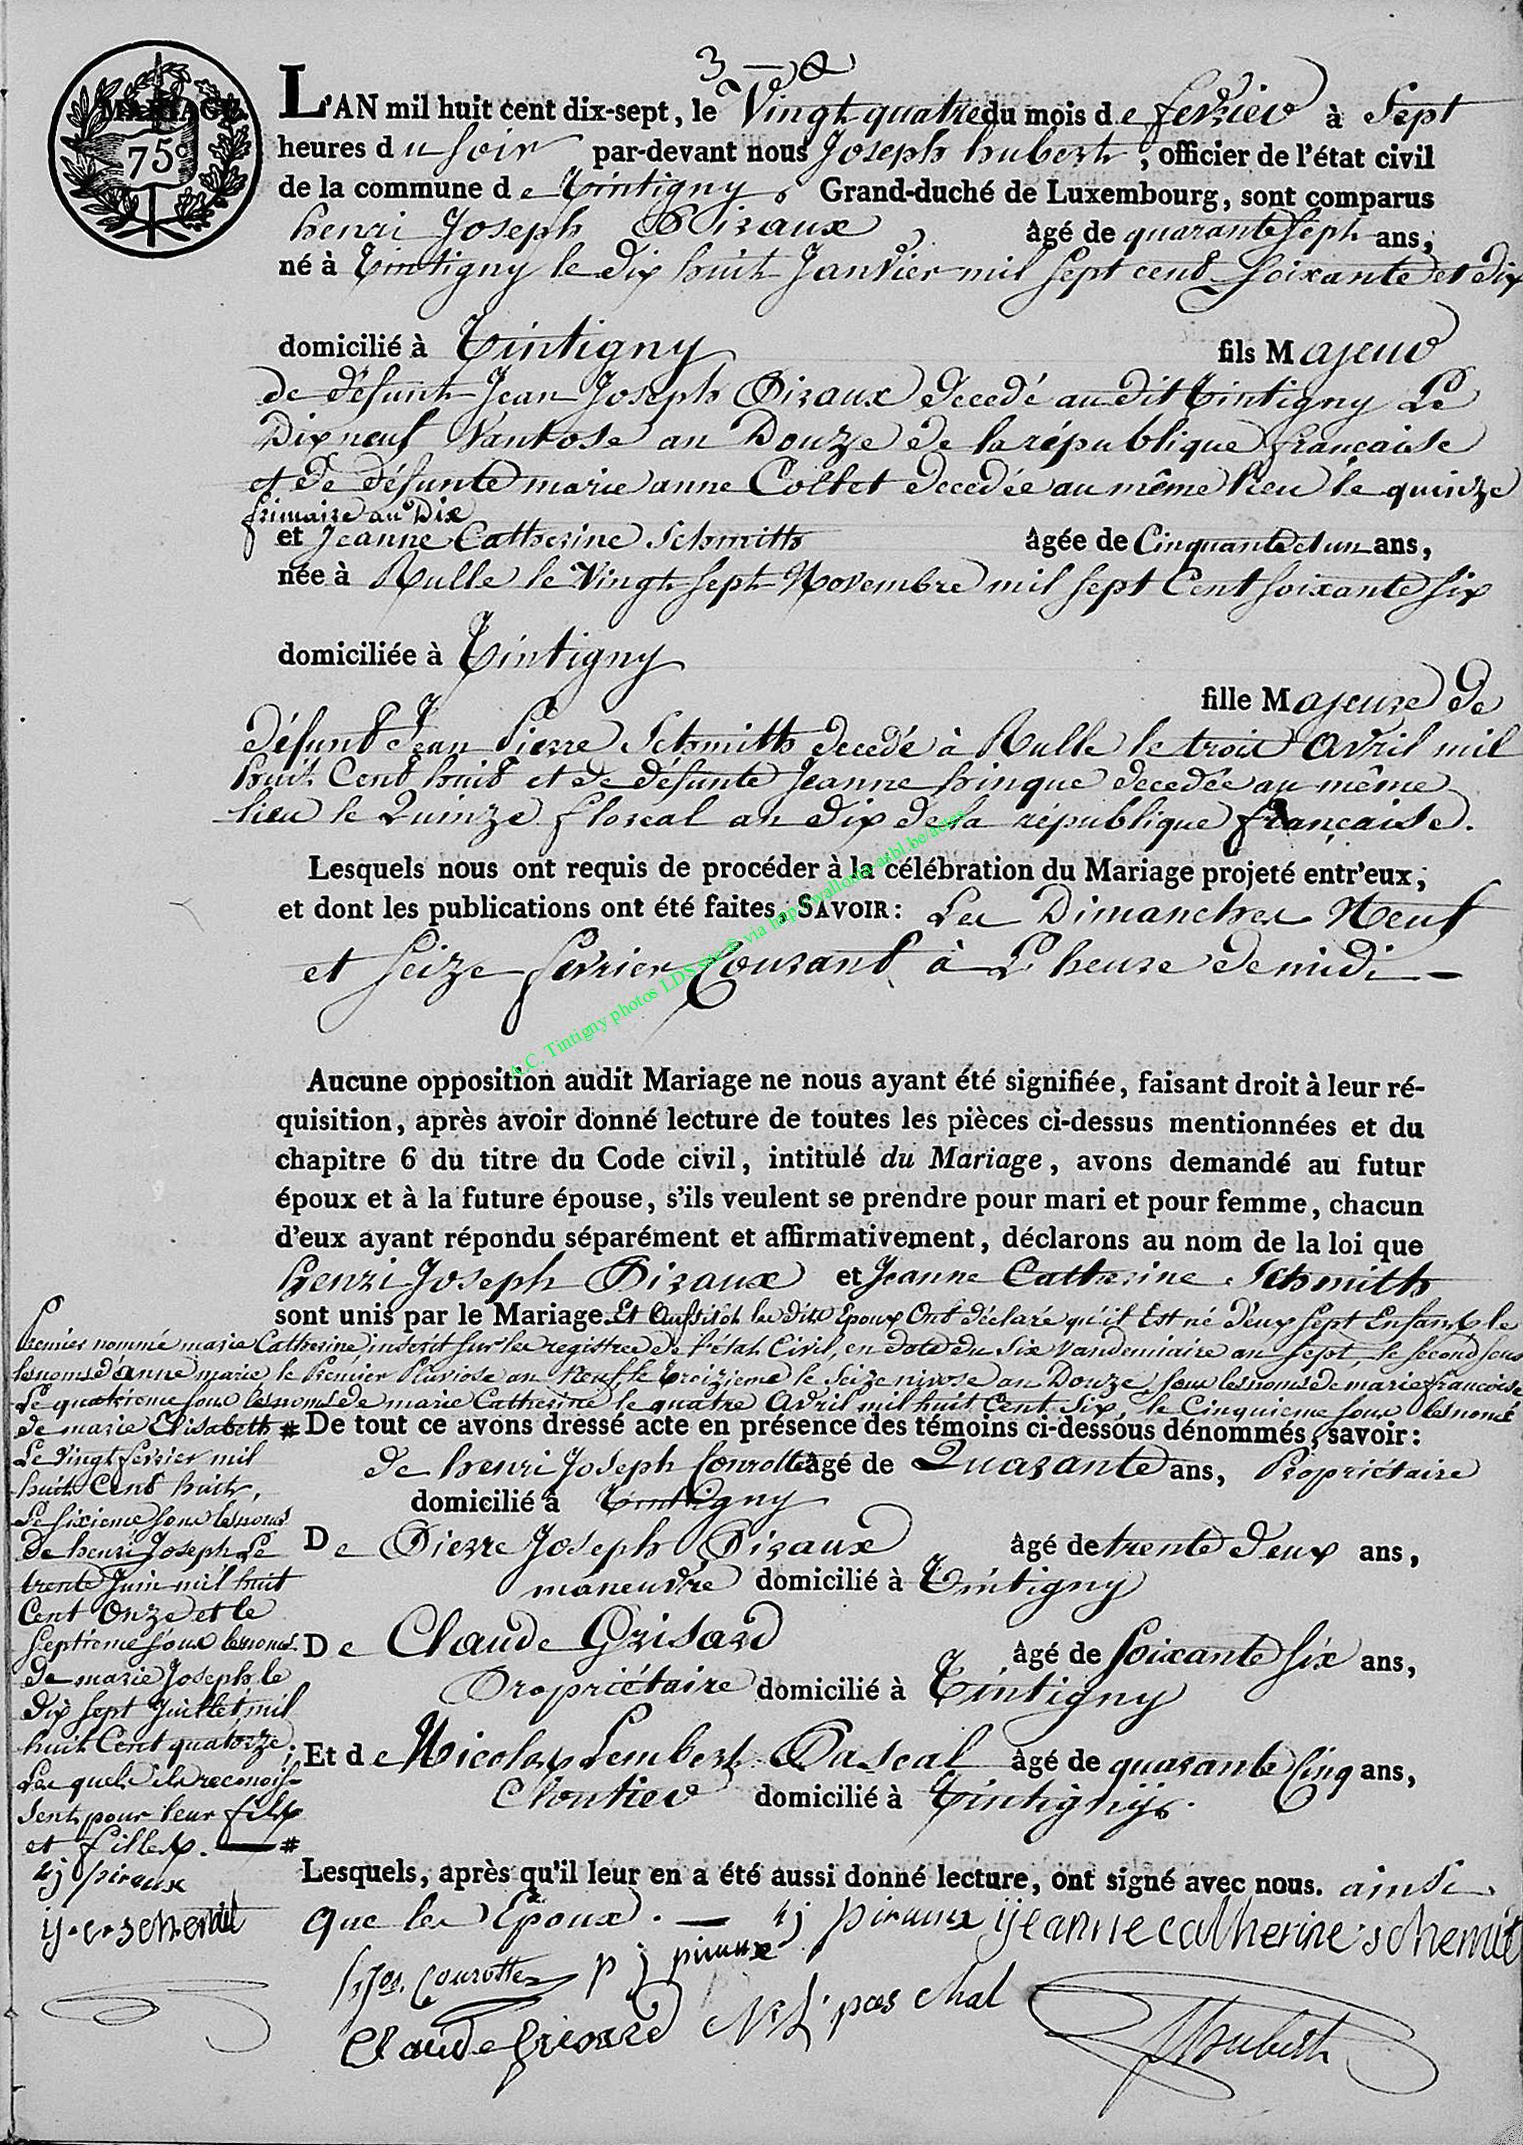 3 — 2
MARIAGE
75c
L'AN mil huit cent dix-sept, le Vingt quatre du mois de fevrier à Sept
heures du soir par-devant nous Joseph hubert, officier de l'état civil
de la commune de Tintigny, Grand-duché de Luxembourg, sont comparus
henri Joseph Piraux âgé de quarante Sept ans,
né à Tintigny le dix huit Janvier mil Sept cent Soixante et dix
domicilié à Tintigny fils Majeur
de défunt Jean Joseph Piraux decedé au dit Tintigny Le
Dix neuf Vantose an Douze de la république française
et de défunte marie anne Collet decedée au même lieu le quinze
frimaire an Dix
et Jeanne Catherine Schmitth âgée de Cinquante et un ans,
née à Rulle le Vingt Sept Novembre mil Sept Cent Soixante Six
domiciliée à Tintigny
fille Majeure de
défunt Jean Pierre Schmitth decedé à Rulle le trois Avril mil
huit Cent huit et de défunte Jeanne hinque decedée au même
lieu le Quinze floreal an dix de la république française.
Lesquels nous ont requis de procéder à la célébration du Mariage projeté entr'eux;
et dont les publications ont été faites, SAVOIR: Les Dimanches Neuf
et Seize fevrier Courant à L'heure de midi —
A.C. Tintigny photos LDS
Aucune opposition audit Mariage ne nous ayant été signifiée, faisant droit à leur ré-
quisition, après avoir donné lecture de toutes les pièces ci-dessus mentionnées et du
chapitre 6 du titre du Code civil, intitulé du Mariage, avons demandé au futur
époux et à la future épouse, s'ils veulent se prendre pour mari et pour femme, chacun
d'eux ayant répondu séparément et affirmativement, déclarons au nom de la loi que
henri Joseph Piraux et Jeanne Catherine Schmitth
sont unis par le Mariage. Et Aussitôt les dits Epoux Ont déclaré qu'il Est né d'eux Sept Enfants le
Premier nommé marie Catherine inscrit sur les registres de l'état Civil, en date du Six Vandemiaire an Sept, le Second sous
les noms d'anne marie le Premier Pluviose an Neuf le troizieme le Seize nivose an Douze sous les noms de marie francoise
Le quatrieme sous les noms de marie Catherine le quatre Avril mil huit Cent Six, le Cinquieme sous les noms
de marie Elisabeth #
Le Vingt fevrier mil
huit Cent huit,
Le Sixieme sous les noms
De henri Joseph Le
trente Juin mil huit
Cent Onze et le
Septieme sous les noms
de marie Joseph le
dix Sept Juillet mil
huit Cent quatorze;
Les quels ils reconois-
sent pour leur fils
et filles. — #
hj piraux
ij. c. schemit
De tout ce avons dressé acte en présence des témoins ci-dessous dénommés, savoir:
de henri Joseph Conrotte âgé de Quarante ans, Propriétaire
domicilié à Tintigny
De Pierre Joseph Piraux âgé de trente deux ans,
maneuvre domicilié à Tintigny
De Claude Grisard âgé de Soixante Six ans,
Propriétaire domicilié à Tintigny
Et de Nicolas Lembert Pascal âgé de quarante Cinq ans,
Cloutier domicilié à Tintigny.
Lesquels, après qu'il leur en a été aussi donné lecture, ont signé avec nous. ainsi
que les Epoux. — hj piraux ijeanne catherine schemit
h Jos. Conrotte p j piraux
Claude Grisard N. L. paschal
Hubert